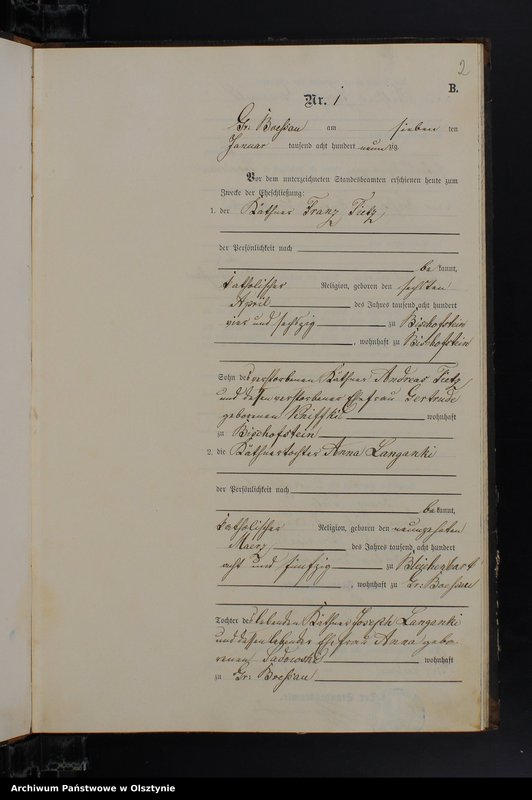 2
B.
Nr. 1
Gr: Boessau am sieben ten
Januar tausend acht hundert neunzig.
Vor dem unterzeichneten Standesbeamten erschienen heute zum
Zwecke der Eheschließung:
1. der Käthner Franz Tietz,
der Persönlichkeit nach
be kannt,
katholischer Religion, geboren den sechsten
April des Jahres tausend acht hundert
vier und sechszig zu Bischofstein
, wohnhaft zu Bischofstein
Sohn des verstorbenen Käthner Andreas Tietz,
und dessen verstorbener Ehefrau Gertrude
geborenen wohnhaft
zu Bischofstein
2. die Käthnertochter Anna Langanki
der Persönlichkeit nach
be kannt,
katholischer Religion, geboren den neunzehnten
Maerz, des Jahres tausend acht hundert
acht und fünfzig zu
, wohnhaft zu Gr: Boessau
Tochter des lebenden Käthner Joseph Langanki
und dessen lebender Ehefrau Anna gebo
renen Sadowski wohnhaft
zu Gr: Boessau
Archiwum Państwowe w Olsztynie